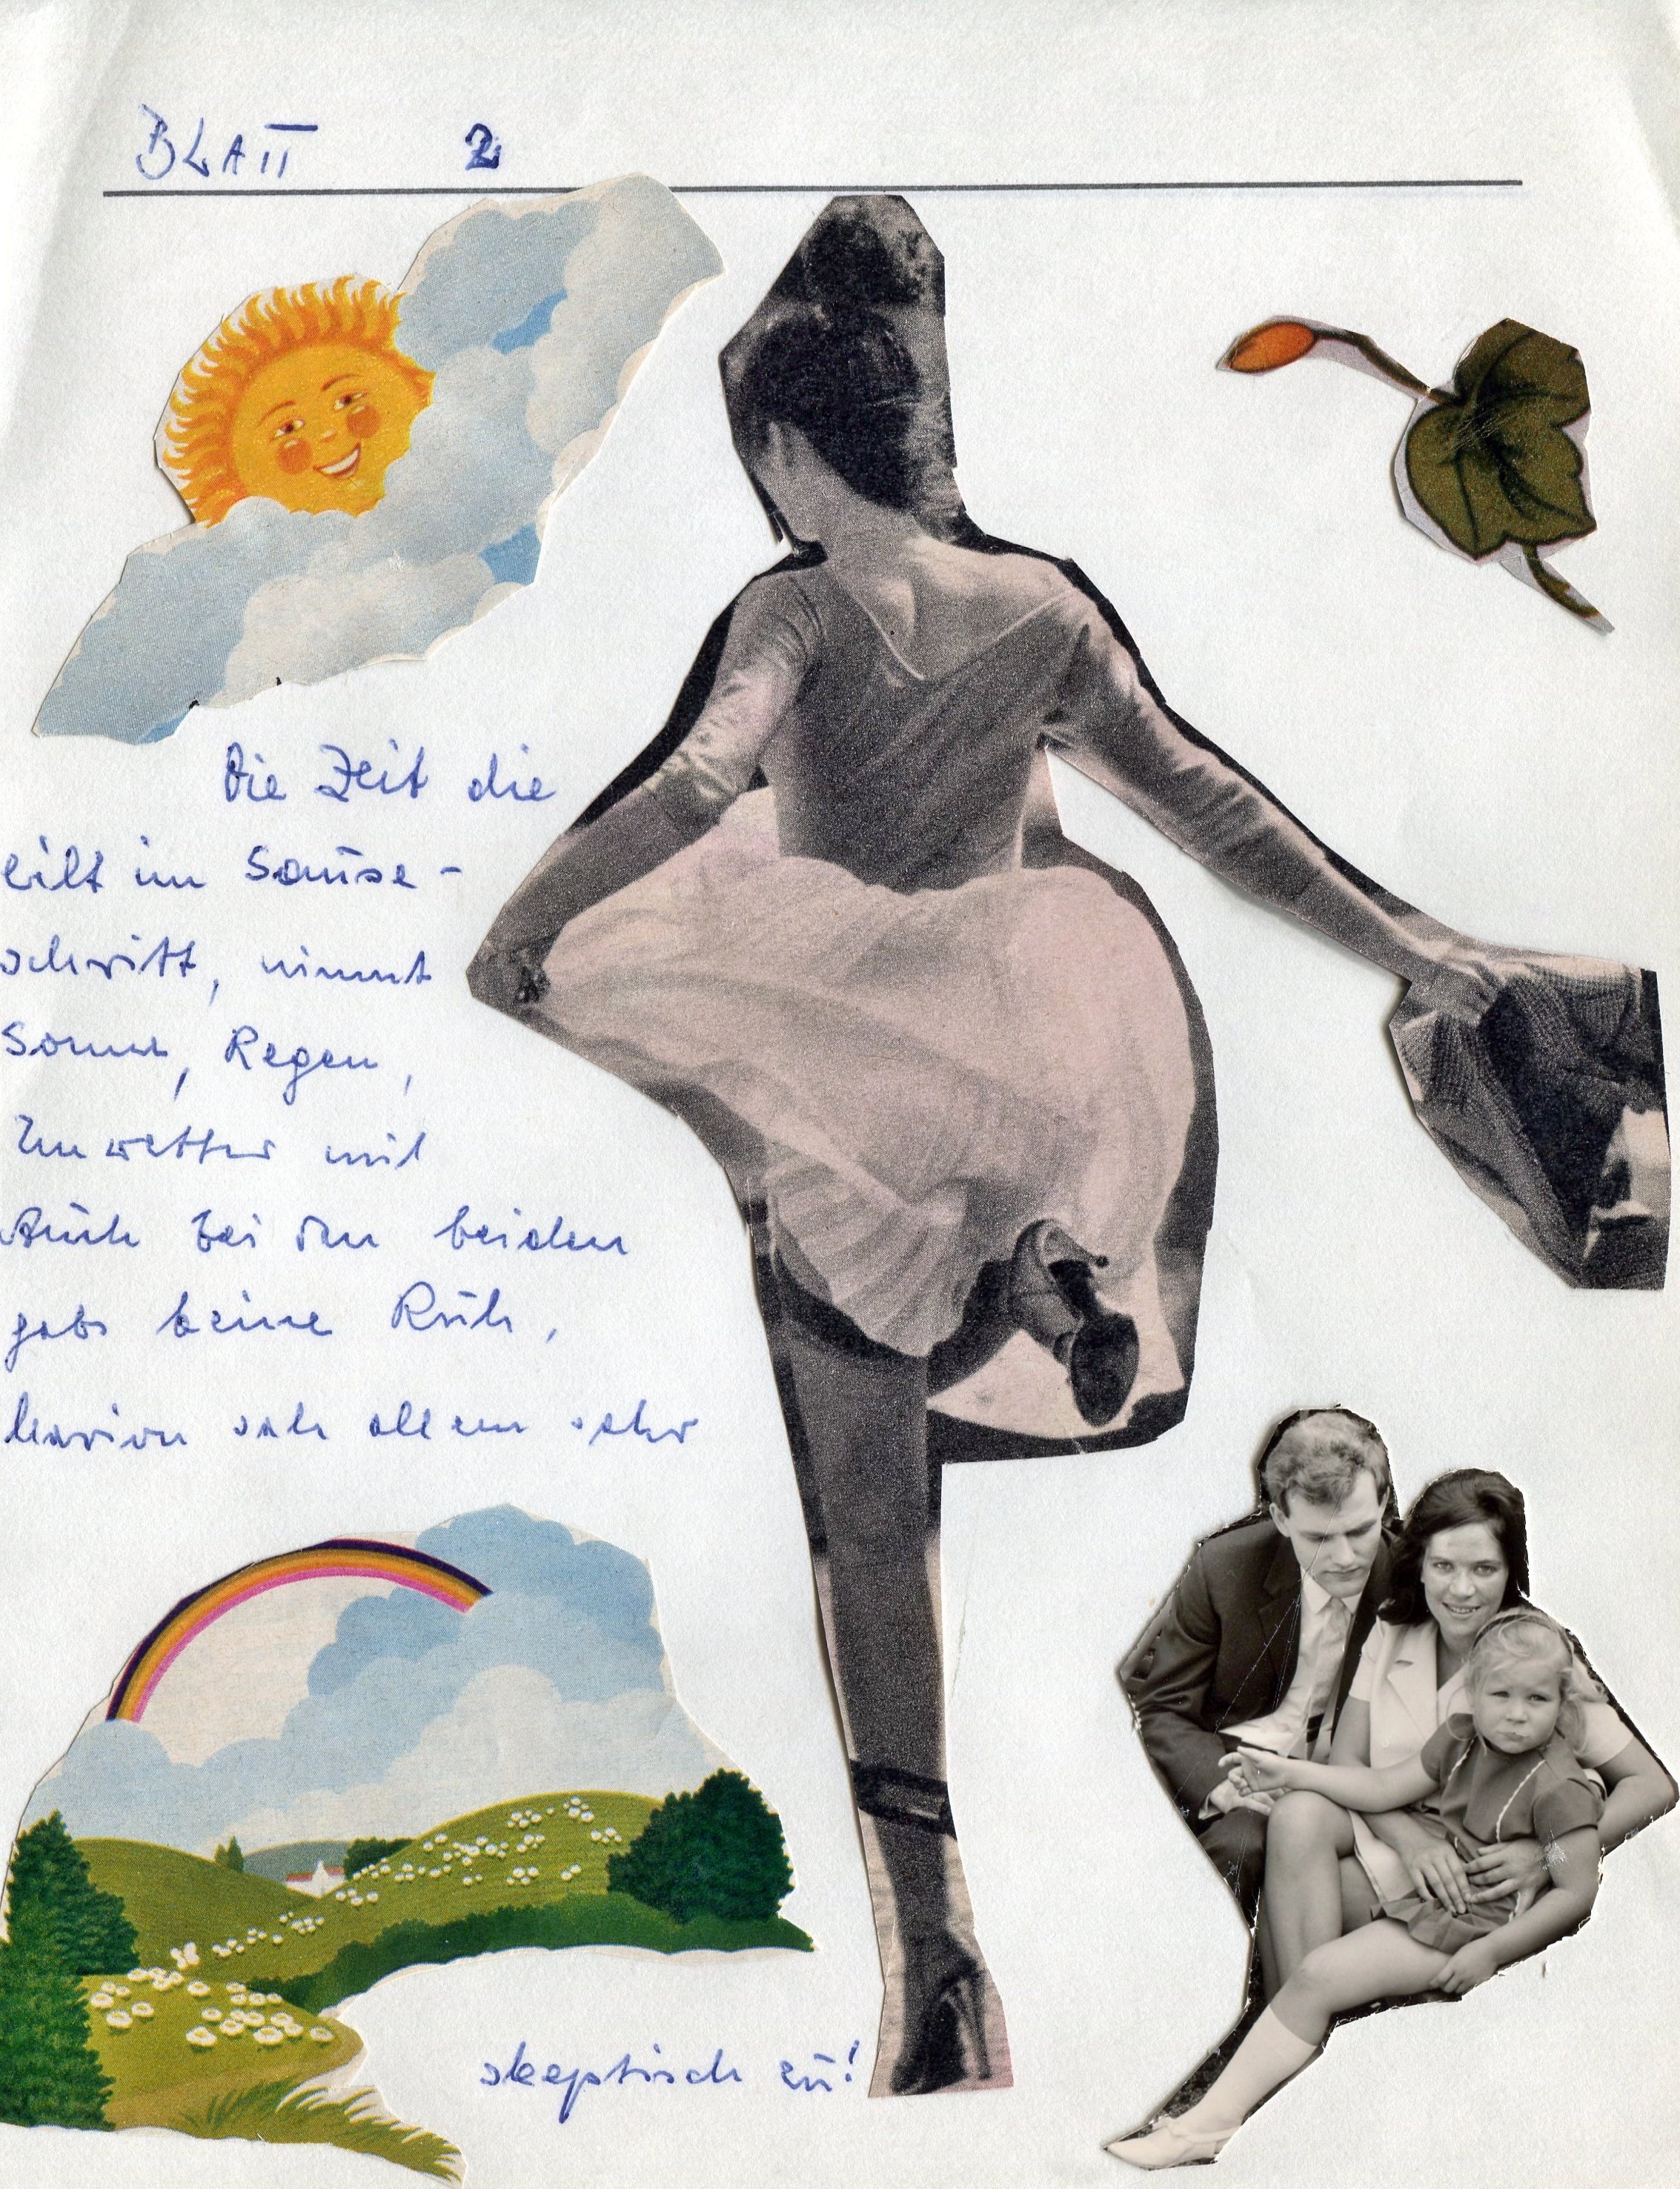 BLATT 2
Die Zeit die
eilt im Sause-
schritt, nimmt
Sonne, Regen,
Unwetter mit
Auch bei den beiden
gabs keine Ruh,
Marion sah allem sehr
skeptisch zu!